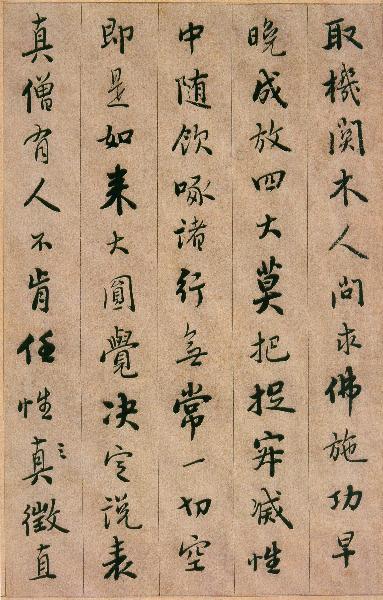 取機關木人問求佛施功早
晚成放四大莫把捉寂滅性
中随飲啄諸行無常一切空
即是如来大圓覺决定説表
真僧有人不肯任性真徵直